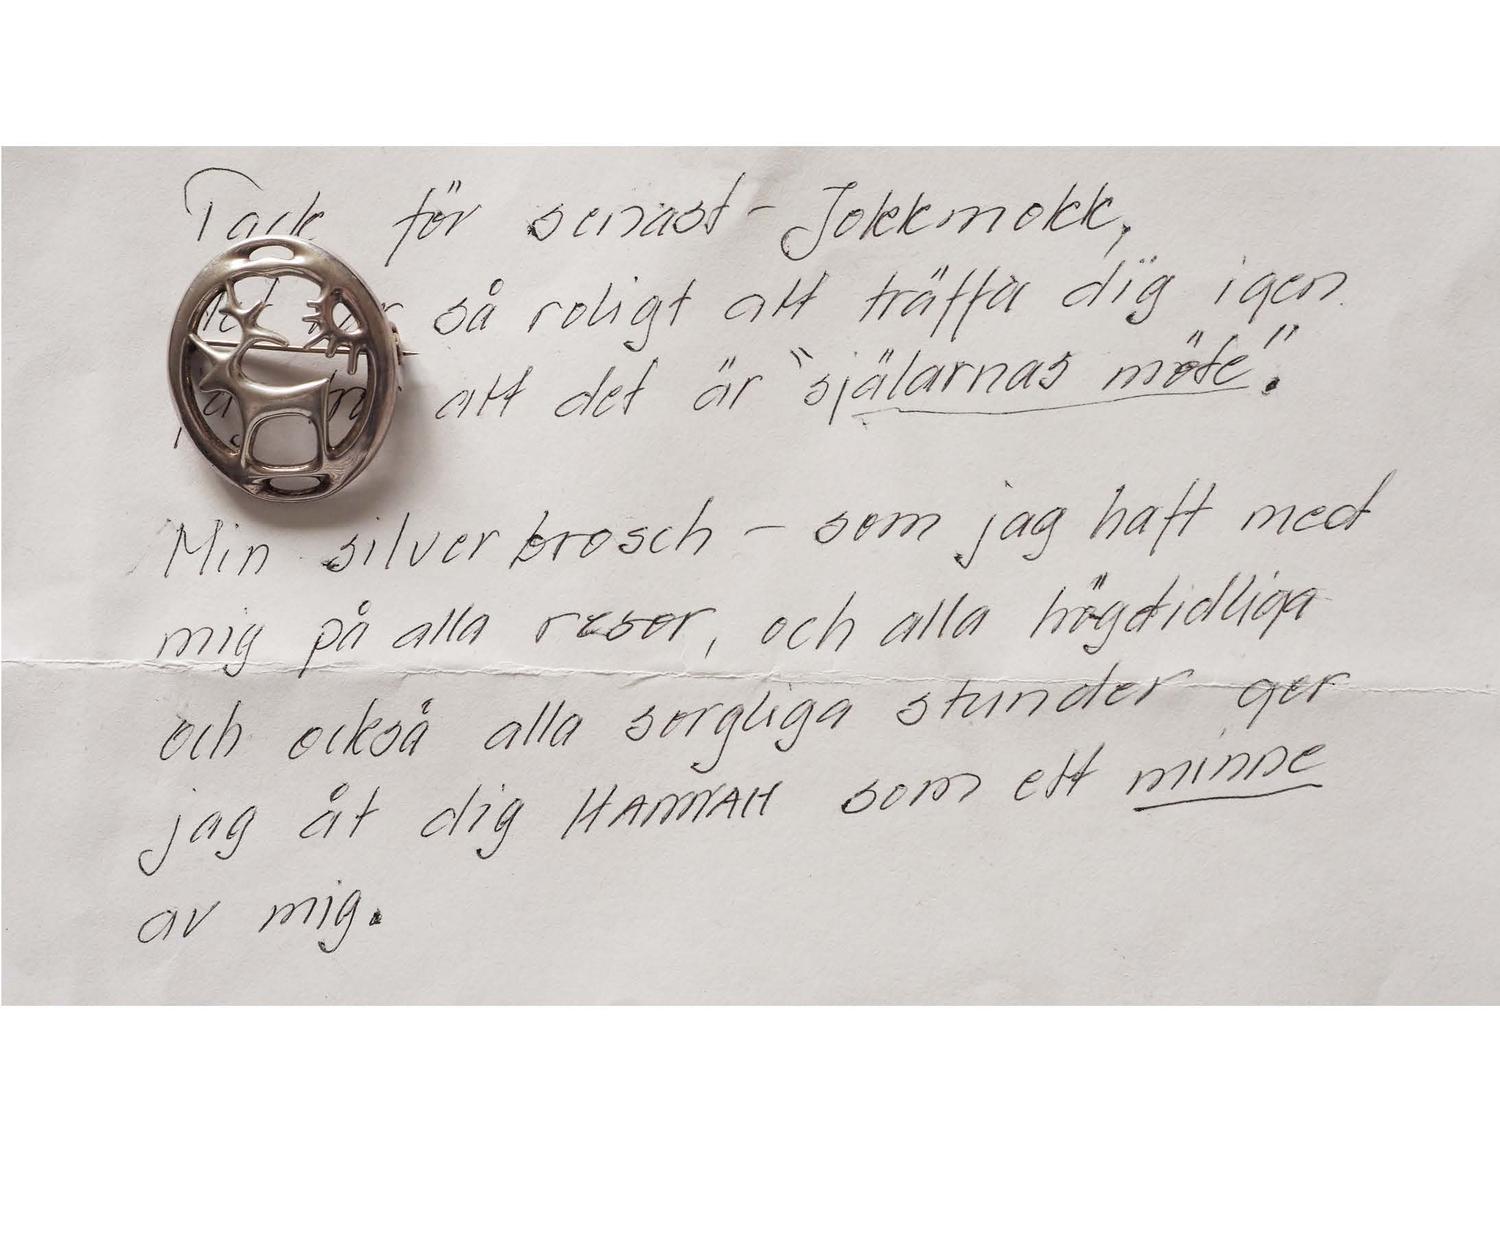 Tack för senast - Jokkmokk,
så roligt att träffa dig igen
att det är "själarnas möte".
Min silverbrosch - som jag haft med
mig på alla resor, och alla högtidliga
och också alla sorgliga stunder ger
jag åt dig HANNAH som ett minne
av mig.